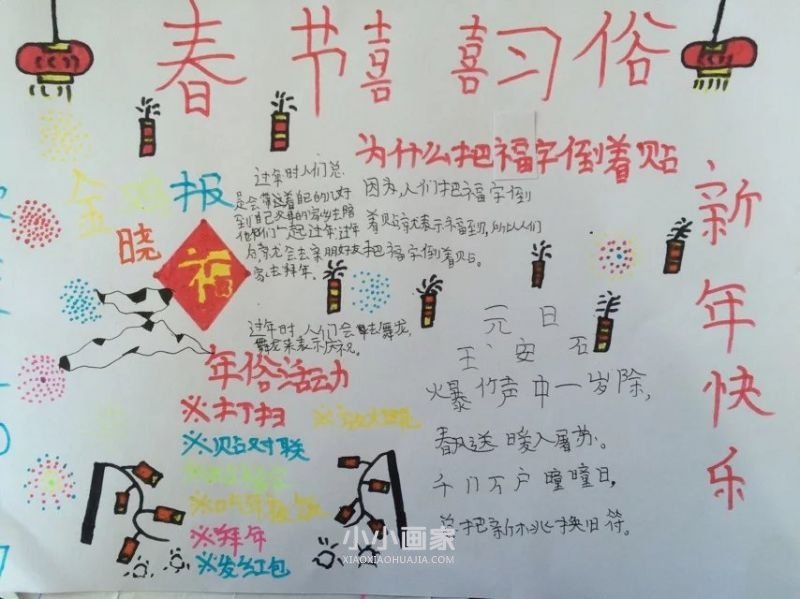 春节喜喜习俗
金鸡报
晓
福
为什么把福字倒着贴
过年时人们总
是会带这着自己的儿好
到自己父母的家出去陪
他们一起过年过年
家去拜年。
因为,人们把福字倒
着贴就表示福到,所以人们
把福字倒着贴。
过年时,人们会舞龙,
舞龙来表示庆祝。
年俗活动
※打扫
※贴对联
※吃年夜饭
※拜年
※发红包
元日
王安石
火暴竹声中一岁除,
春风送暖入屠苏。
千门万户曈曈日,
总把新桃换旧符。
新年快乐
小小画家
XIAOXIAOHUAJIA.COM